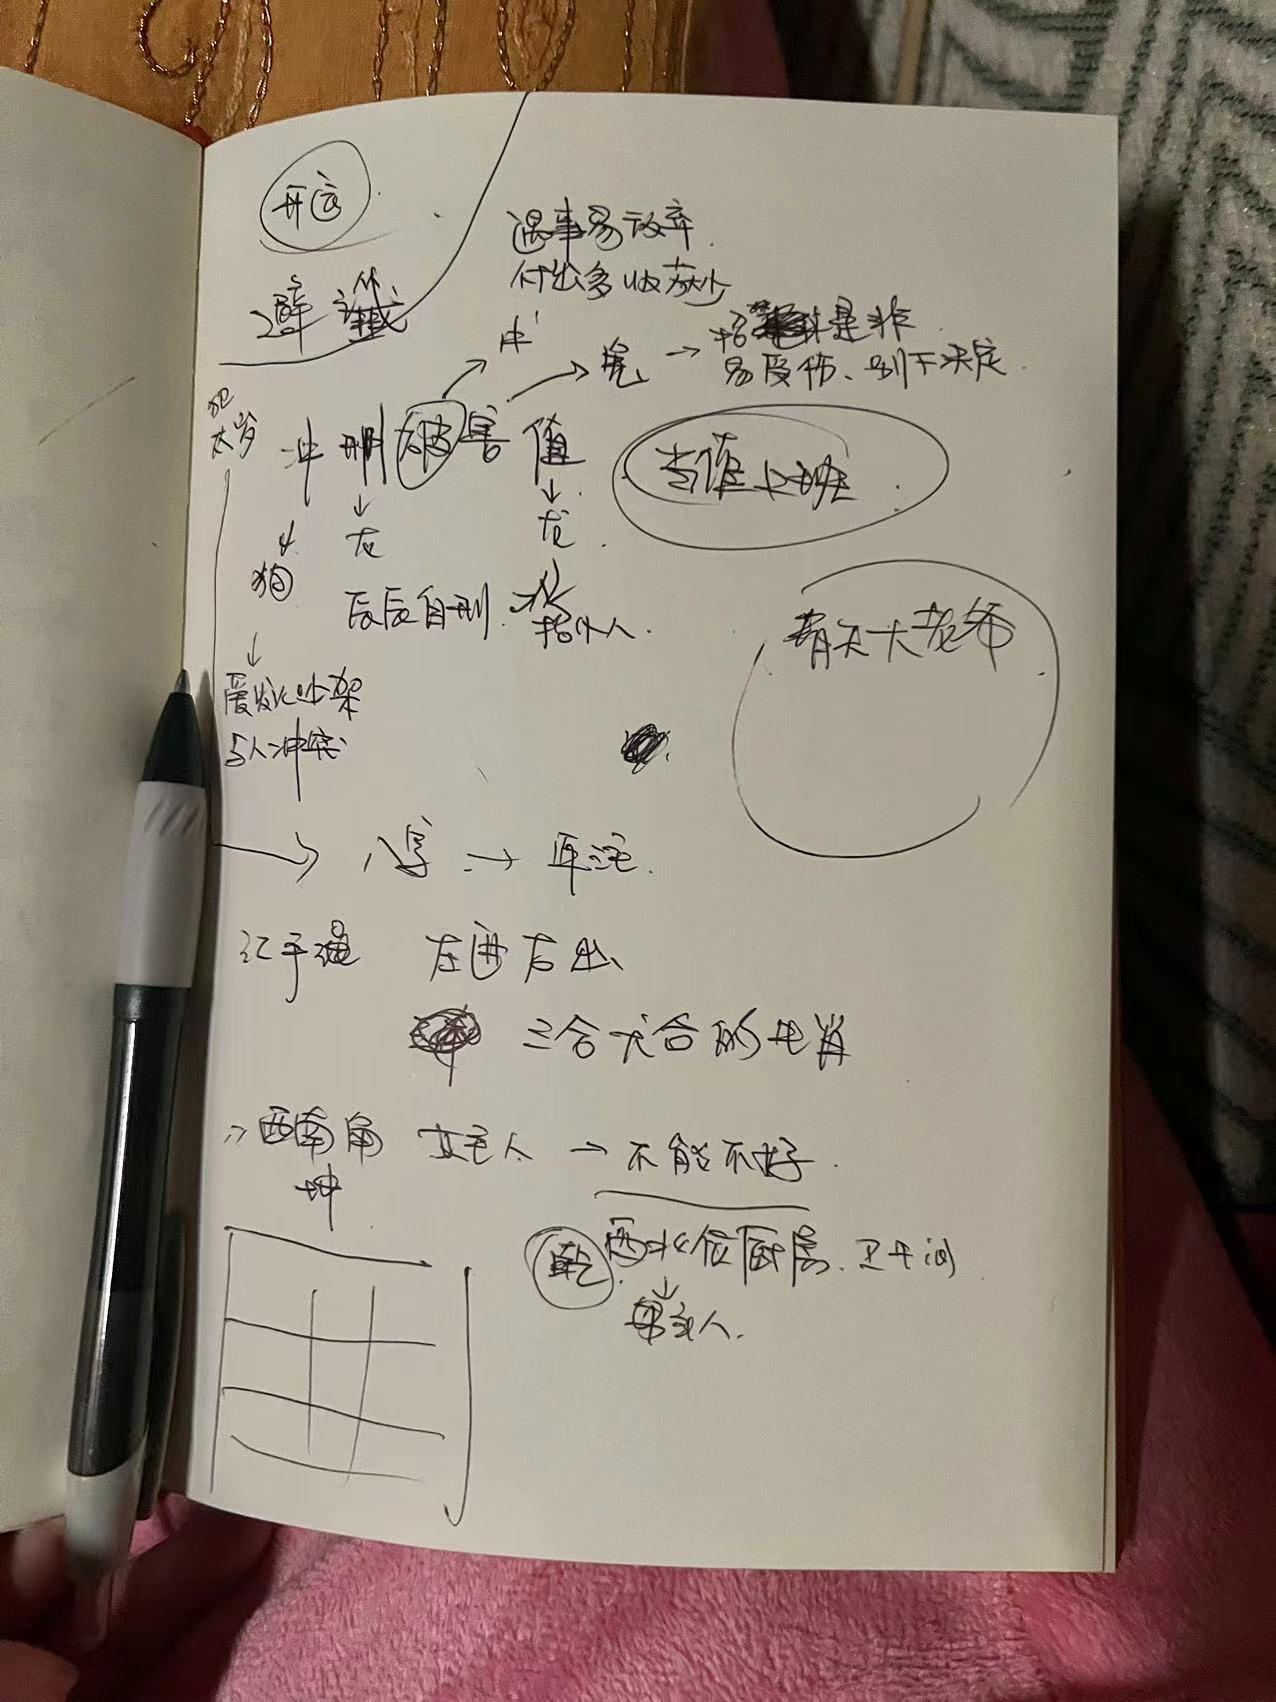 开运
避谶
遇事易放弃
付出多收获少
牛
兔 → 招是非
易受伤、别下决定
犯太岁
冲刑破害值
当值上班
狗
龙
龙
辰辰自刑
招小人
青天大老爷
爱发火吵架
与人冲突
八字 →
红手绳 左进右出
三合六合的生肖
西南角 女主人 → 不能不好
坤
乾 西北位厨房、卫生间
男主人